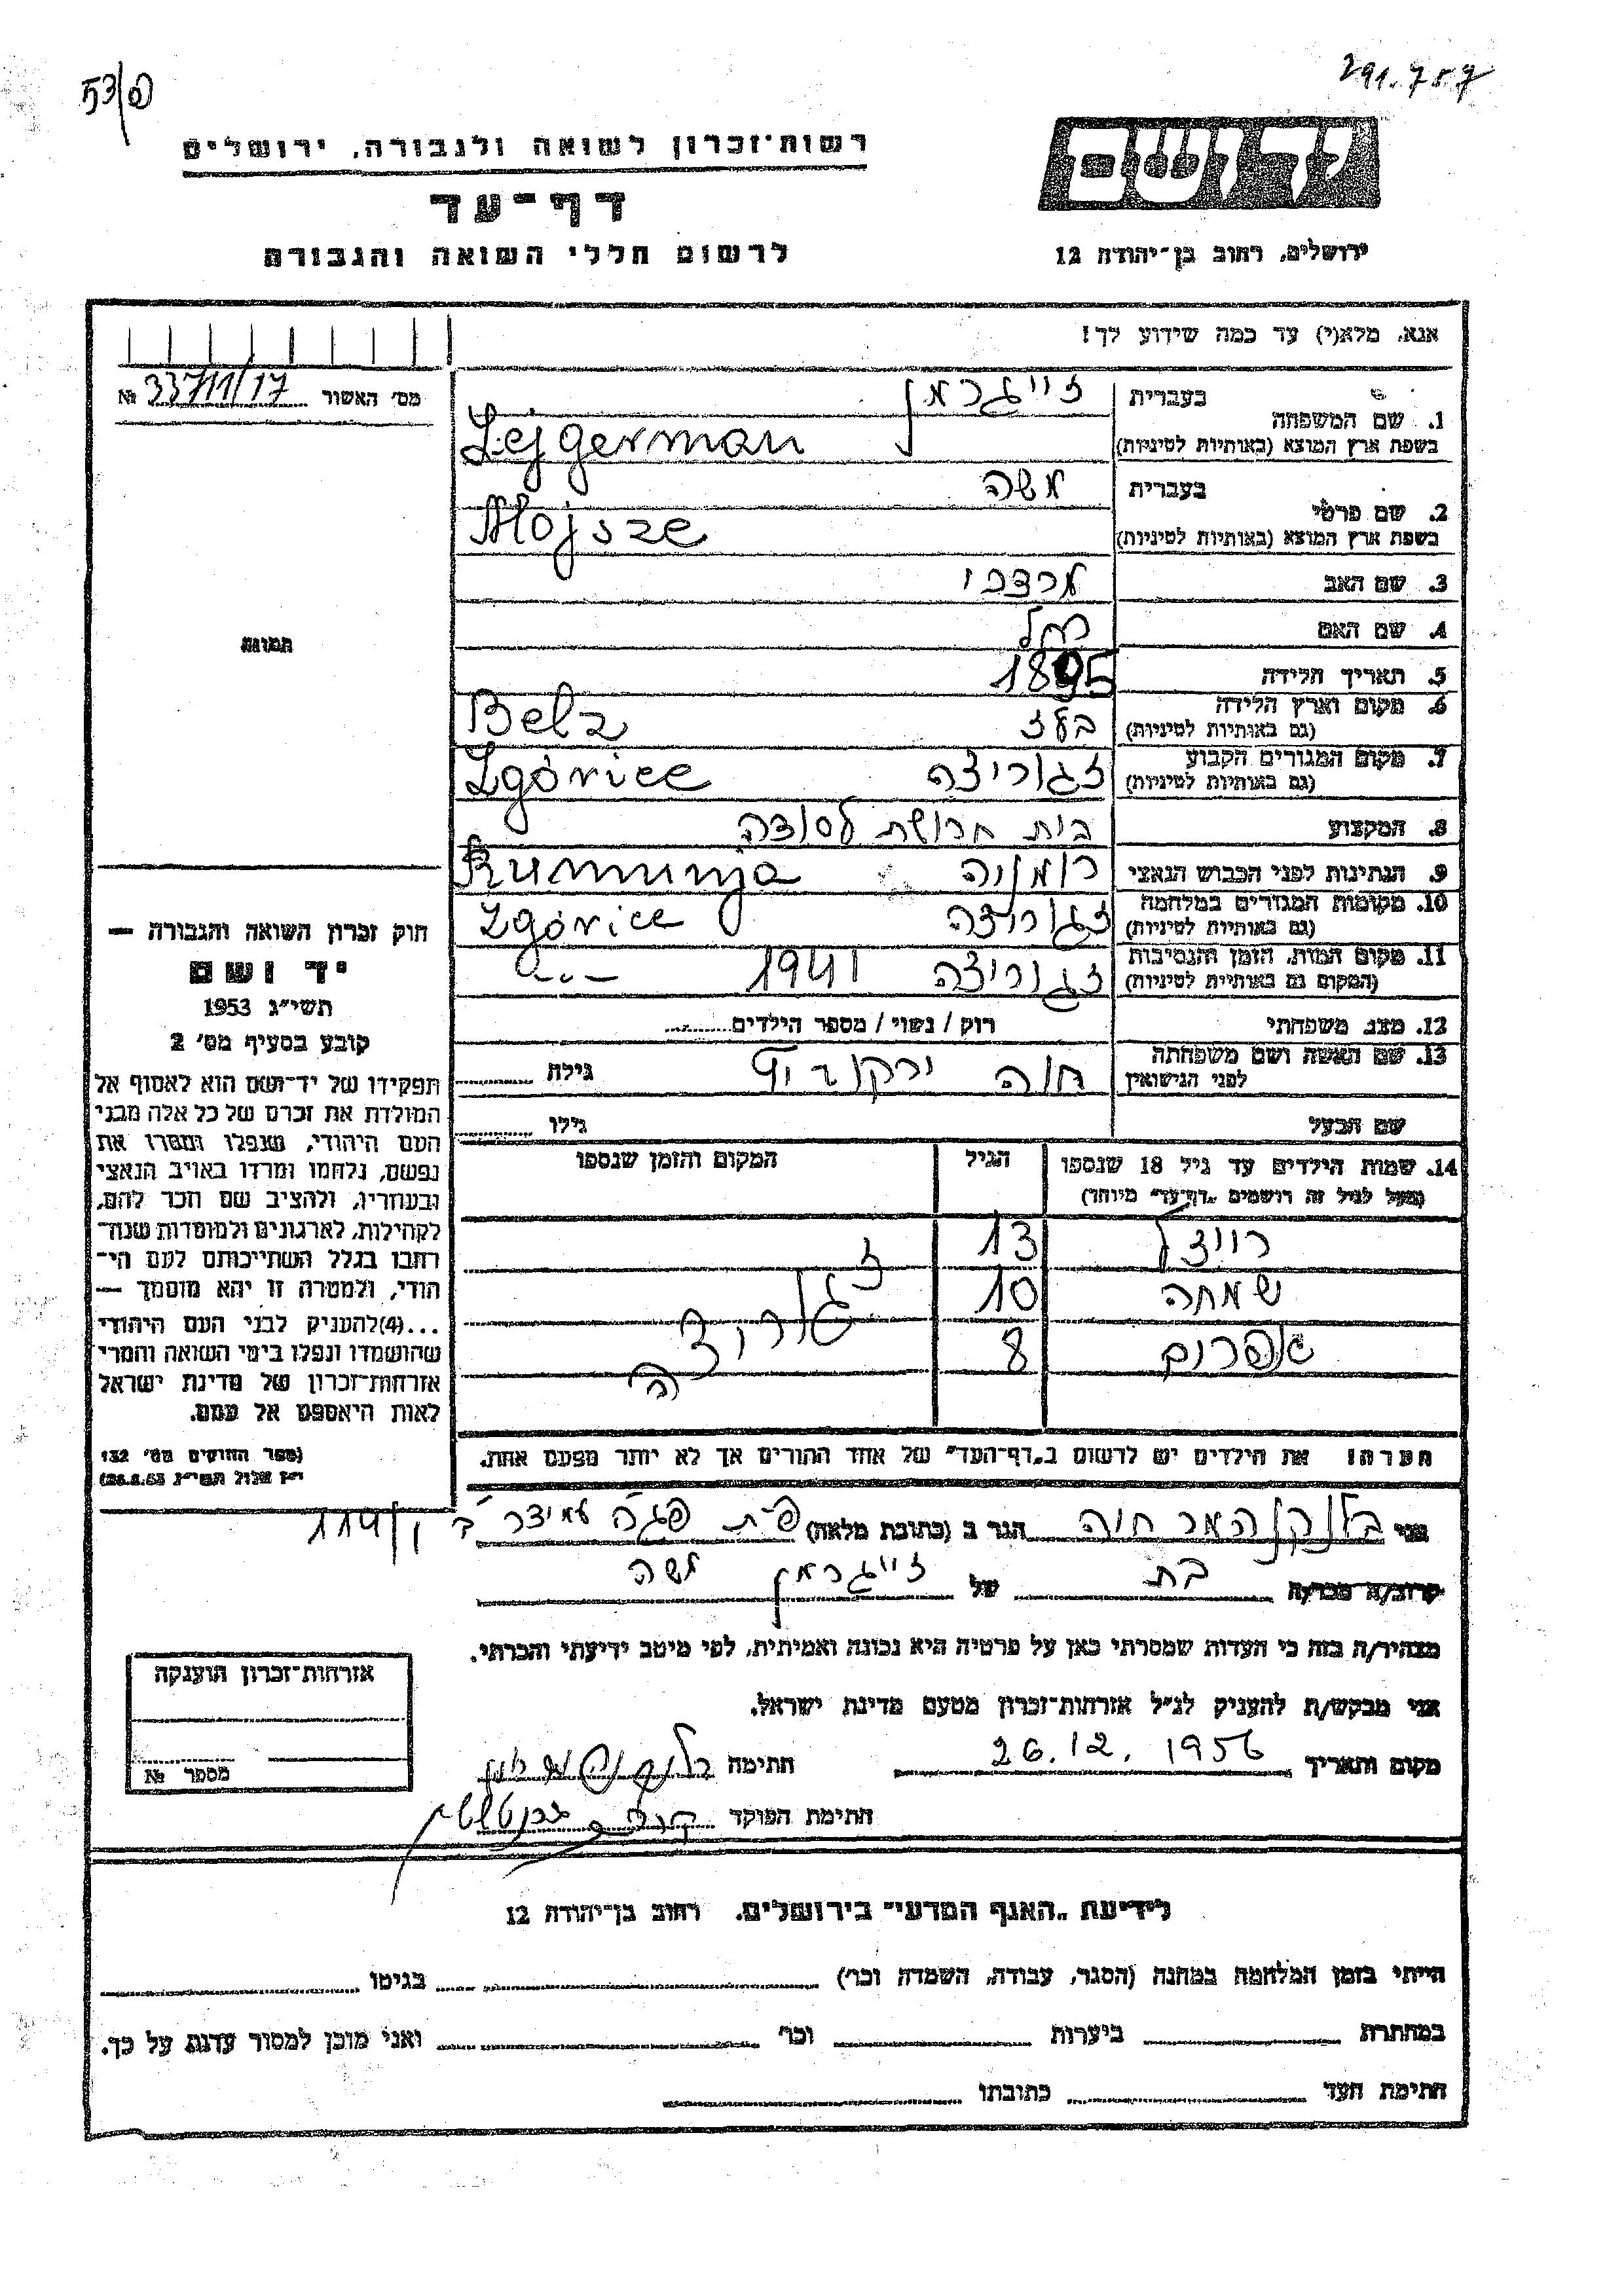 53/6
291.757
רשות־זכרון לשואה ולגבורה, ירושלים
יד ושם
דף־עד
לרשום חללי השואה והגבורה
ירושלים, רחוב בן־יהודה 12
אנא, מלא(י) עד כמה שידוע לך!
מס׳ האשור 337/11/17 №
1. שם המשפחה
בעברית זייגרמן
בשפת ארץ המוצא (באותיות לטיניות) Zejgerman
2. שם פרטי
בעברית משה
בשפת ארץ המוצא (באותיות לטיניות) Mojsze
3. שם האב מרדכי
4. שם האם רחל
5. תאריך הלידה 1895
6. מקום וארץ הלידה
(גם באותיות לטיניות) בעלז Belz
7. מקום המגורים הקבוע
(גם באותיות לטיניות) זגוריצה Zgórice
8. המקצוע בית חרושת לסודה
9. הנתינות לפני הכבוש הנאצי רומניה Rumunja
10. מקומות המגורים במלחמה
(גם באותיות לטיניות) זגוריצה Zgórice
11. מקום המות, הזמן והנסיבות
(המקום גם באותיות לטיניות) זגוריצה 1941
12. מצב משפחתי רוק / נשוי / מספר הילדים
13. שם האשה ושם משפחתה
לפני הנישואין חוה גילה
שם הבעל גילו
14. שמות הילדים עד גיל 18 שנספו הגיל המקום והזמן שנספו
(מעל לגיל זה רושמים „דף־עד״ מיוחד)
רייזל 13 זגוריצה
שמחה 10
אפרים 8
הערה! את הילדים יש לרשום ב„דף־העד״ של אחד ההורים אך לא יותר מפעם אחת.
תמונה
חוק זכרון השואה והגבורה —
יד ושם
תשי״ג 1953
קובע בסעיף מס׳ 2
תפקידו של יד־ושם הוא לאסוף אל
המולדת את זכרם של כל אלה מבני
העם היהודי, שנפלו ומסרו את
נפשם, נלחמו ומרדו באויב הנאצי
ובעוזריו, ולהציב שם וזכר להם,
לקהילות, לארגונים ולמוסדות שנח־
רבו בגלל השתייכותם לעם הי־
הודי, ולמטרה זו יהא מוסמך —
...(4)להעניק לבני העם היהודי
שהושמדו ונפלו בימי השואה והמרי
אזרחות־זכרון של מדינת ישראל
לאות היאספם אל עמם.
(ספר החוקים מס׳ 132
י״ז אלול תשי״ג 28.8.53)
אני בלנקהמר חוה הגר ב (כתובת מלאה) פ״ת פג״ה עמידר
קרוב/ה מכר/ה בת של זייגרמן משה
מצהיר/ה בזה כי העדות שמסרתי כאן על פרטיה היא נכונה ואמיתית, לפי מיטב ידיעתי והכרתי.
אני מבקש/ת להעניק לנ״ל אזרחות־זכרון מטעם מדינת ישראל.
מקום ותאריך 26.12.1956 חתימה
חתימת הפוקד
אזרחות־זכרון הוענקה
מספר №
לידיעת „האגף המדעי״ בירושלים. רחוב בן־יהודה 12
הייתי בזמן המלחמה במחנה (הסגר, עבודה, השמדה וכר׳) בגיטו
במחתרת ביערות וכר׳ ואני מוכן למסור עדות על כך.
חתימת העד כתובתו